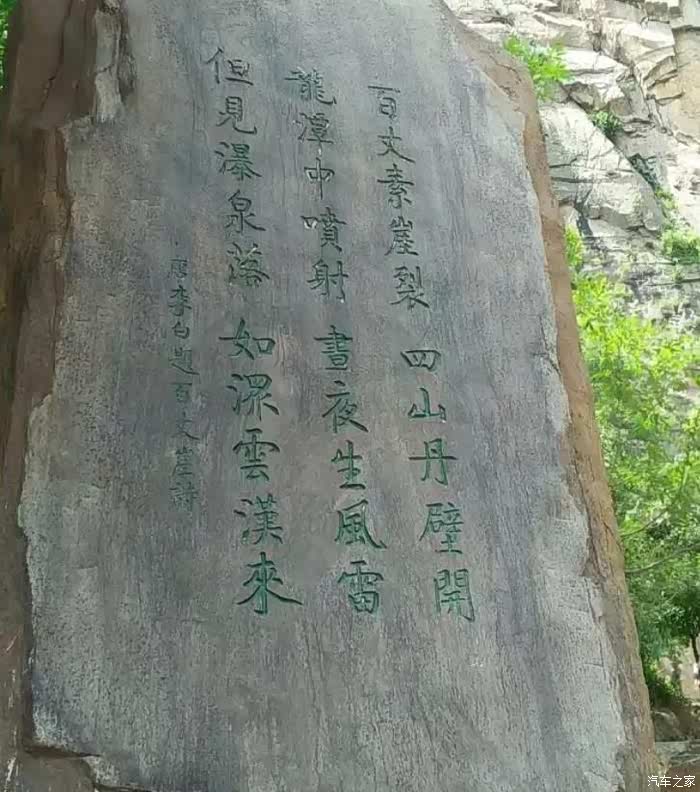 百丈素崖裂 四山丹壁開
龍潭中噴射 晝夜生風雷
但見瀑泉落 如潨雲漢來
唐李白題百丈崖詩
汽车之家